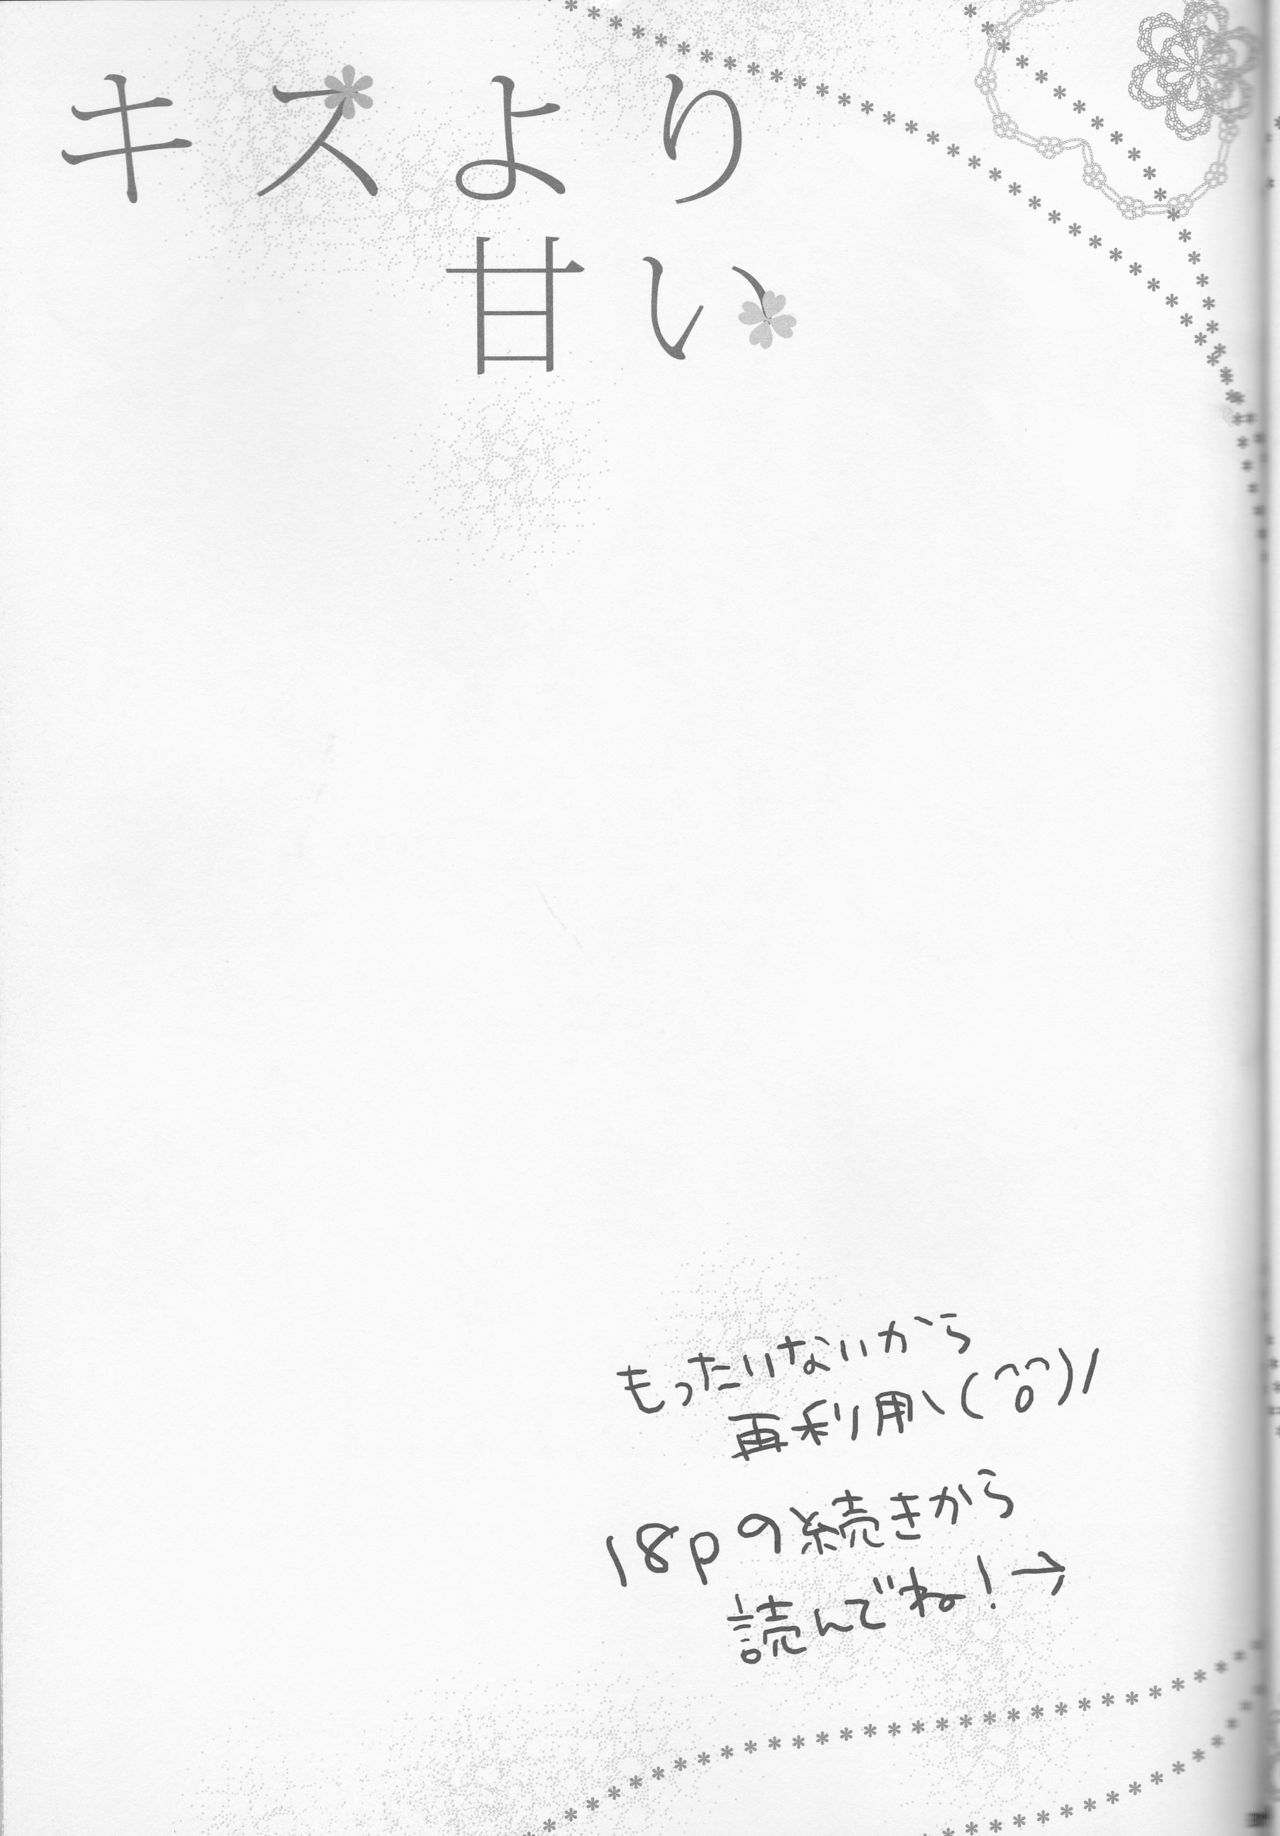 キスより
甘い
もったいないから
再利用ヽ(^o^)/
18pの続きから
読んでね!→